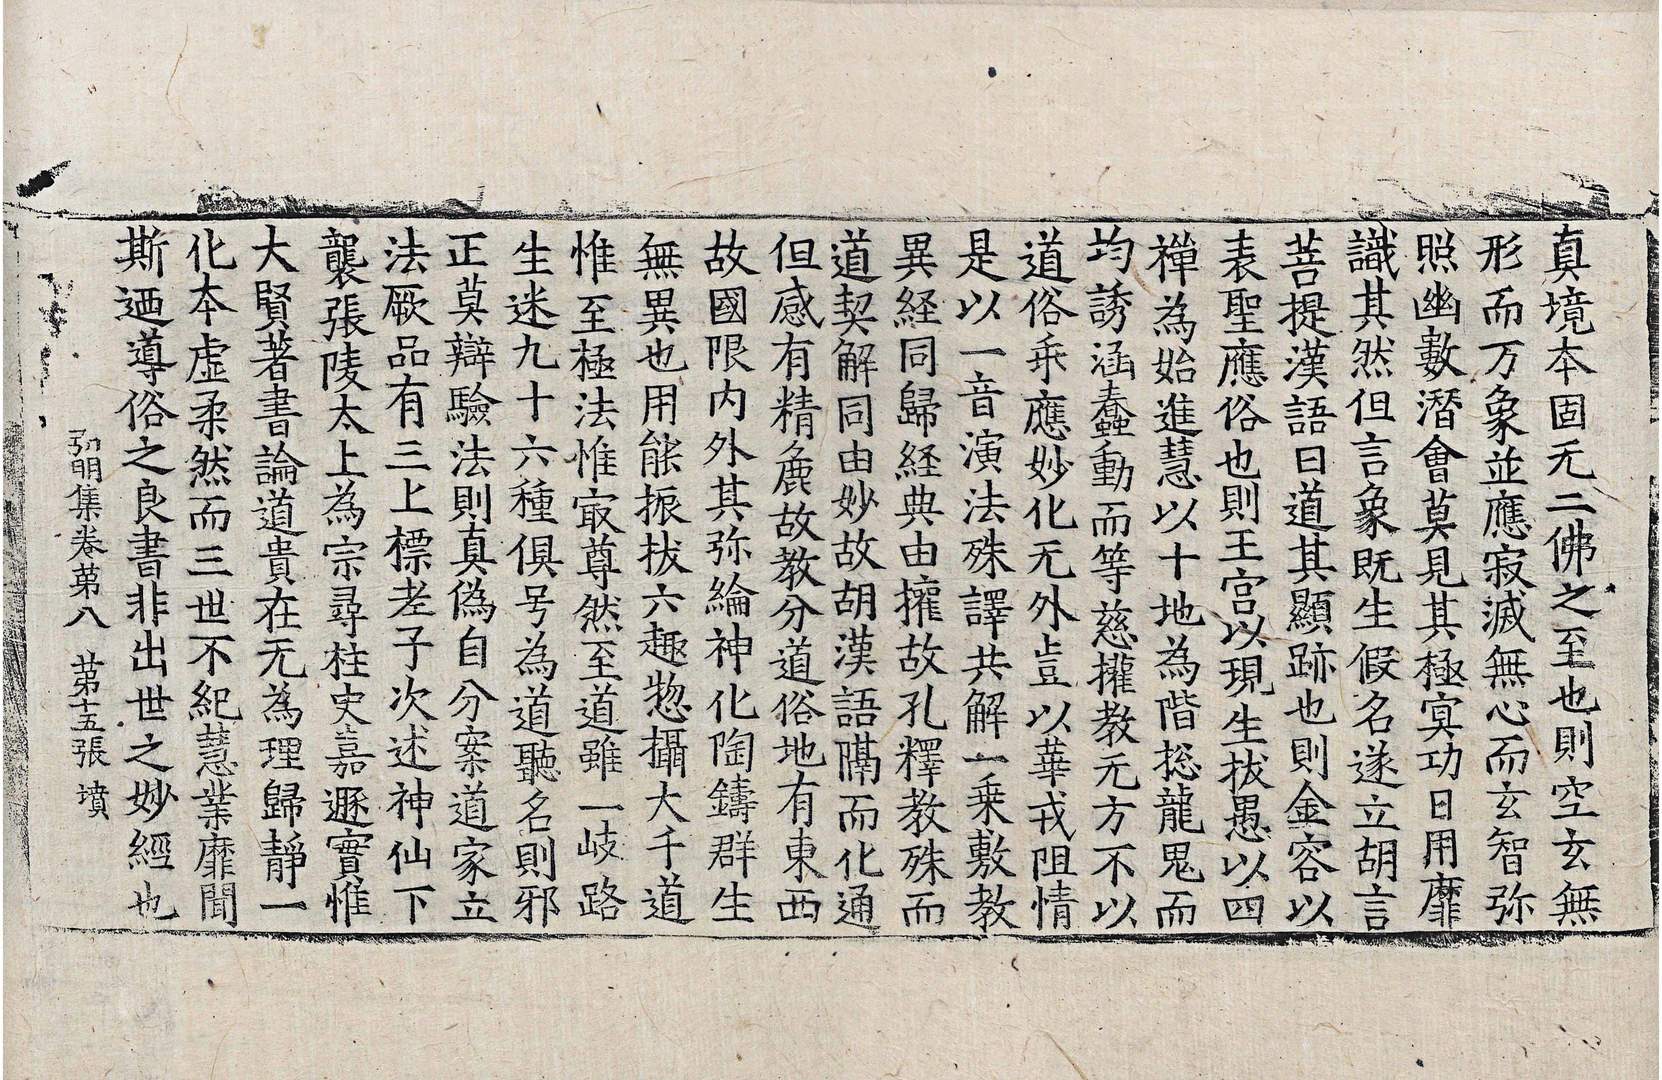 真境本固无二佛之至也則空玄無
形而万象並應寂滅無心而玄智弥
照幽數潛會莫見其極冥功日用靡
識其然但言象既生假名遂立胡言
菩提漢語曰道其顯跡也則金容以
表聖應俗也則王宮以現生拔愚以四
禪為始進慧以十地為階捴龍鬼而
均誘涵蠢動而等慈擁教无方不以
道俗乖應妙化无外豈以華戎阻情
是以一音演法殊譯共解一乗敷教
異経同歸経典由擁故孔釋教殊而
道契解同由妙故胡漢語隔而化通
但感有精麁故教分道俗地有東西
故國限内外其弥綸神化陶鑄群生
無異也用能振拔六趣惣攝大千道
惟至極法惟㝡尊然至道雖一岐路
生迷九十六種俱号為道聽名則邪
正莫辯驗法則真偽自分案道家立
法厥品有三上標老子次述神仙下
襲張陵太上為宗尋柱史嘉遯實惟
大賢著書論道貴在无為理歸静一
化本虛柔然而三世不紀慧業靡聞
斯迺導俗之良書非出世之妙經也
弘明集卷苐八 苐十五張 墳